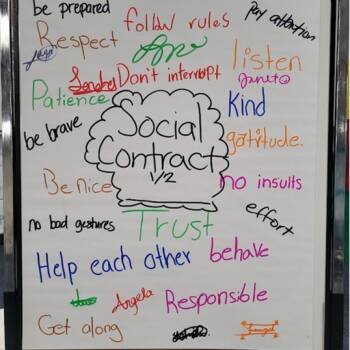 be prepared
follow rules
Pay attention
Respect
listen
Don't interrupt
Janeto
Patience
Kind
be brave
Social
Contract
1/2
gratitude.
Be nice
no insults
effort
no bad gestures
Trust
Help each other
behave
Angela
Responsible
Get along